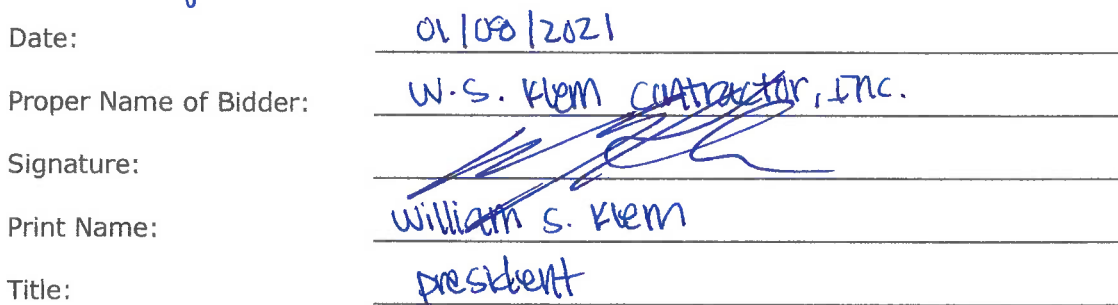 Date: 01/08/2021
Proper Name of Bidder: W.S. Klem Contractor, Inc.
Signature:
Print Name: William S. Klem
Title: president